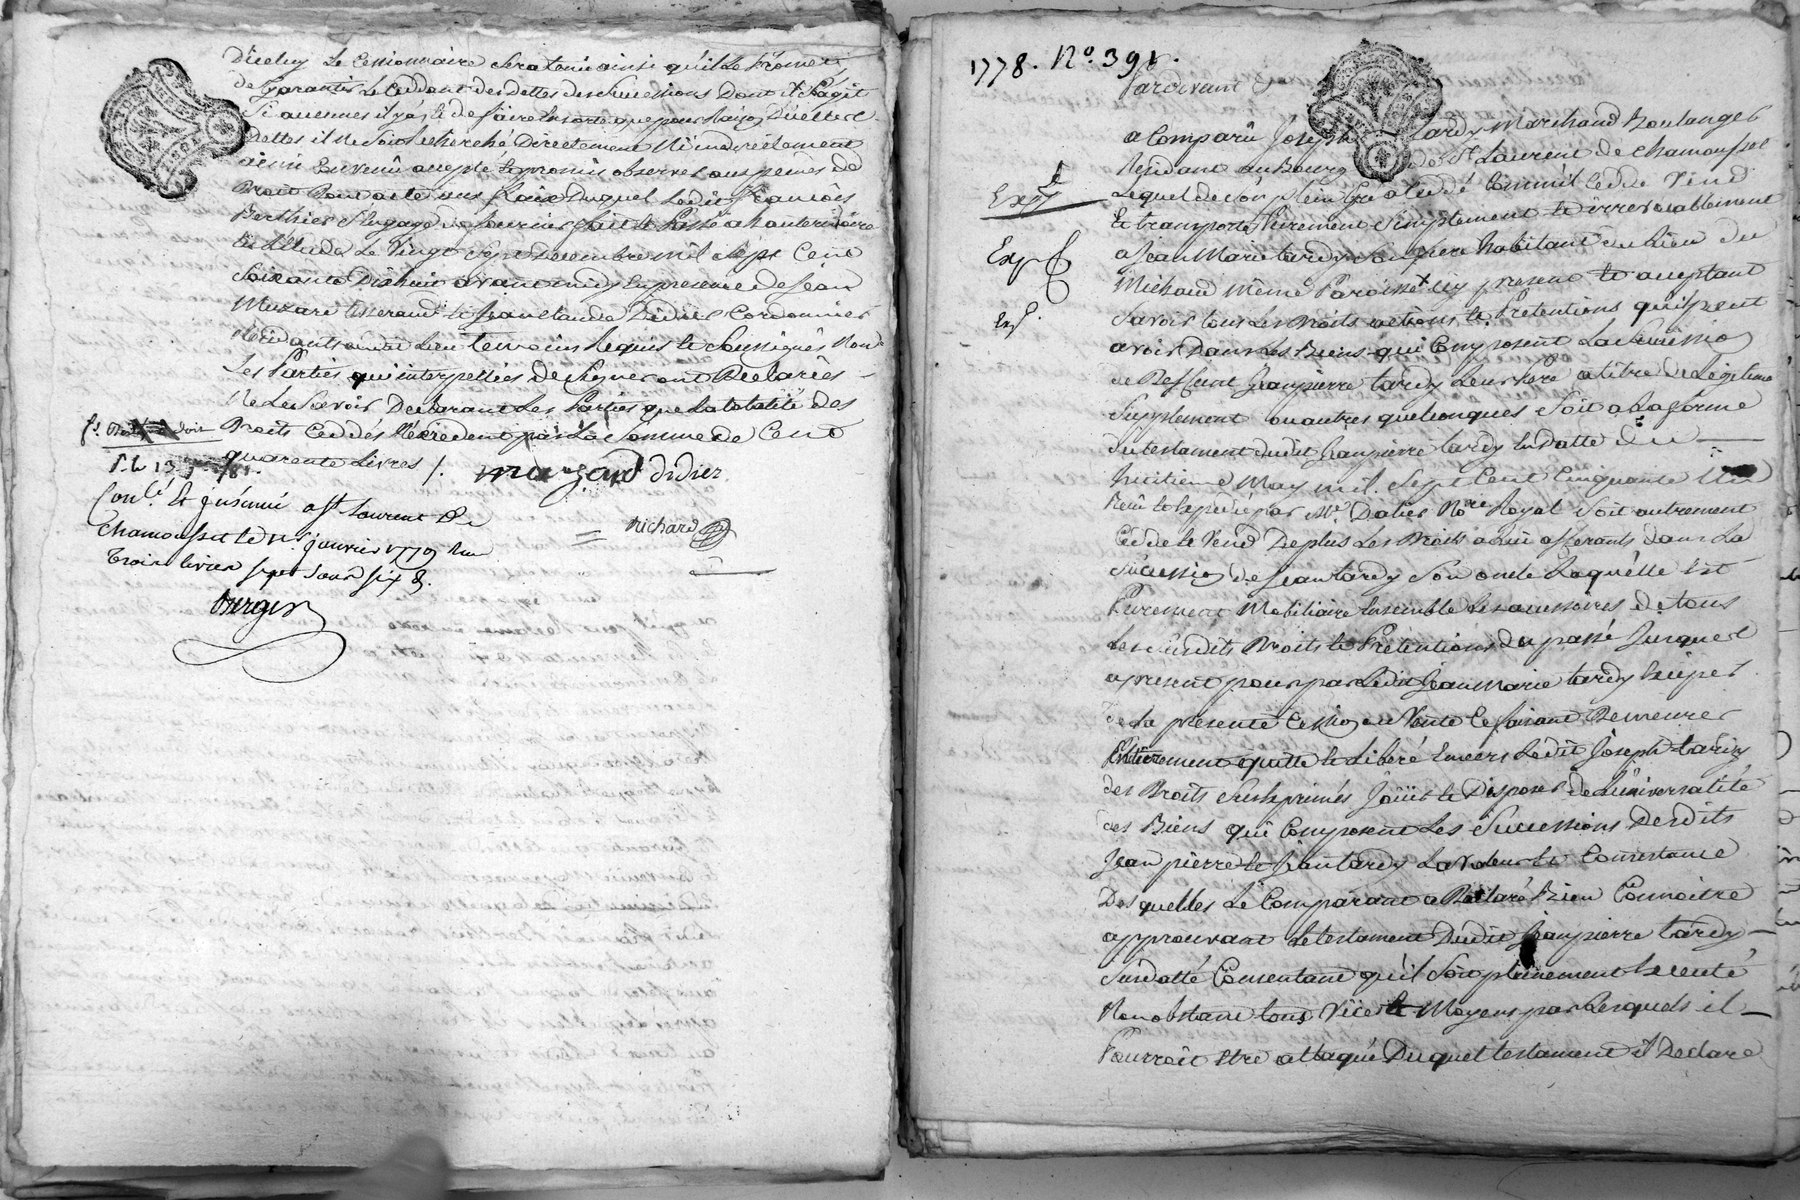 D'iceluy Le Cessionnaire sera tenu ainsi qu'il le promet
de garantir Le Ceddant des dettes des successions Dont il s'agit
si aucunes il y a, et de faire ensorte que pour raison D'icelles
Dettes il ne soit recherché Directement ni indirectement
ainsi Convenû accepté et promis observer aux peines de
Droit Dont acte
Berthier
Vingt Sept Decembre mil Sept Cent
Soixante Dix huit avant midy En presence de Jean
Mazard tisserand et Jean Claude Didier Cordonnier
Residants audit Lieu temoins Requis et Soussignés Non
Les Parties qui interpellées De signer ont Declarées
Ne Le Scavoir Declarant Les Parties que La totalité des
Droits Ceddés N'excedent pas La Somme de Cent
quarante Livres /.
mazard didier
Richard
Con.lé et Insinué a St Laurent De
Chamousset le janvier 1779 Reçu
Trois livres sept sous six d.
Berger
1778. N.º 391.
Pardevant
a Comparû Joseph tardy Marchand Boulanger
Residant au Bourg de St Laurent de Chamousset
Lequel de son plein Gré a Ceddé Commis Cedde Vend
Et transporte Purement Simplement et irrevocablement
a Jean Marie tardy Son frere habitant au Lieu du
Michaud même Paroisse icy present et acceptant
Savoir tous Les Droits actions et Prétentions qu'il peut
avoir Dans Les Biens qui Composent La Succession
de Deffunt Jean pierre tardy Leur Pere a titre de Legitime
Supplement ou autres quelconques Soit a La forme
du testament dudit Jean pierre tardy En Datte du
huitième May mil Sept Cent Cinquante
Reçû et Expedié par Me. Dalier No.re Royal Soit autrement
Cedde et Vend De plus Les Droits a Lui afférants dans La
Succession de Jean tardy Son oncle Laquelle Est
Purement Mobiliaire Ensemble Les accessoires de tous
Les Susdits Droits et Prétentions du passé Jusques
a present pour par Ledit Jean Marie tardy
de La presente Cession ou Vente Ce faisant Demeurer
Entierement quitte et Libéré Envers Ledit Joseph tardy
des Droits Susexprimés Joüir et Disposer de L'universalité
des Biens qui Composent Les Successions Desdits
Jean pierre et Jean tardy La Valeur et Consistance
Desquelles Le Comparant a Declaré Bien Connoitre
approuvant Le testament Dudit Jean pierre tardy
Susdatté Consentant qu'il Soit pleinement Executé
Nonobstant tous Vices et Moyens par Lesquels il
Pourroit être attaqué Duquel testament il Declare
Exp
Exp
Exp.